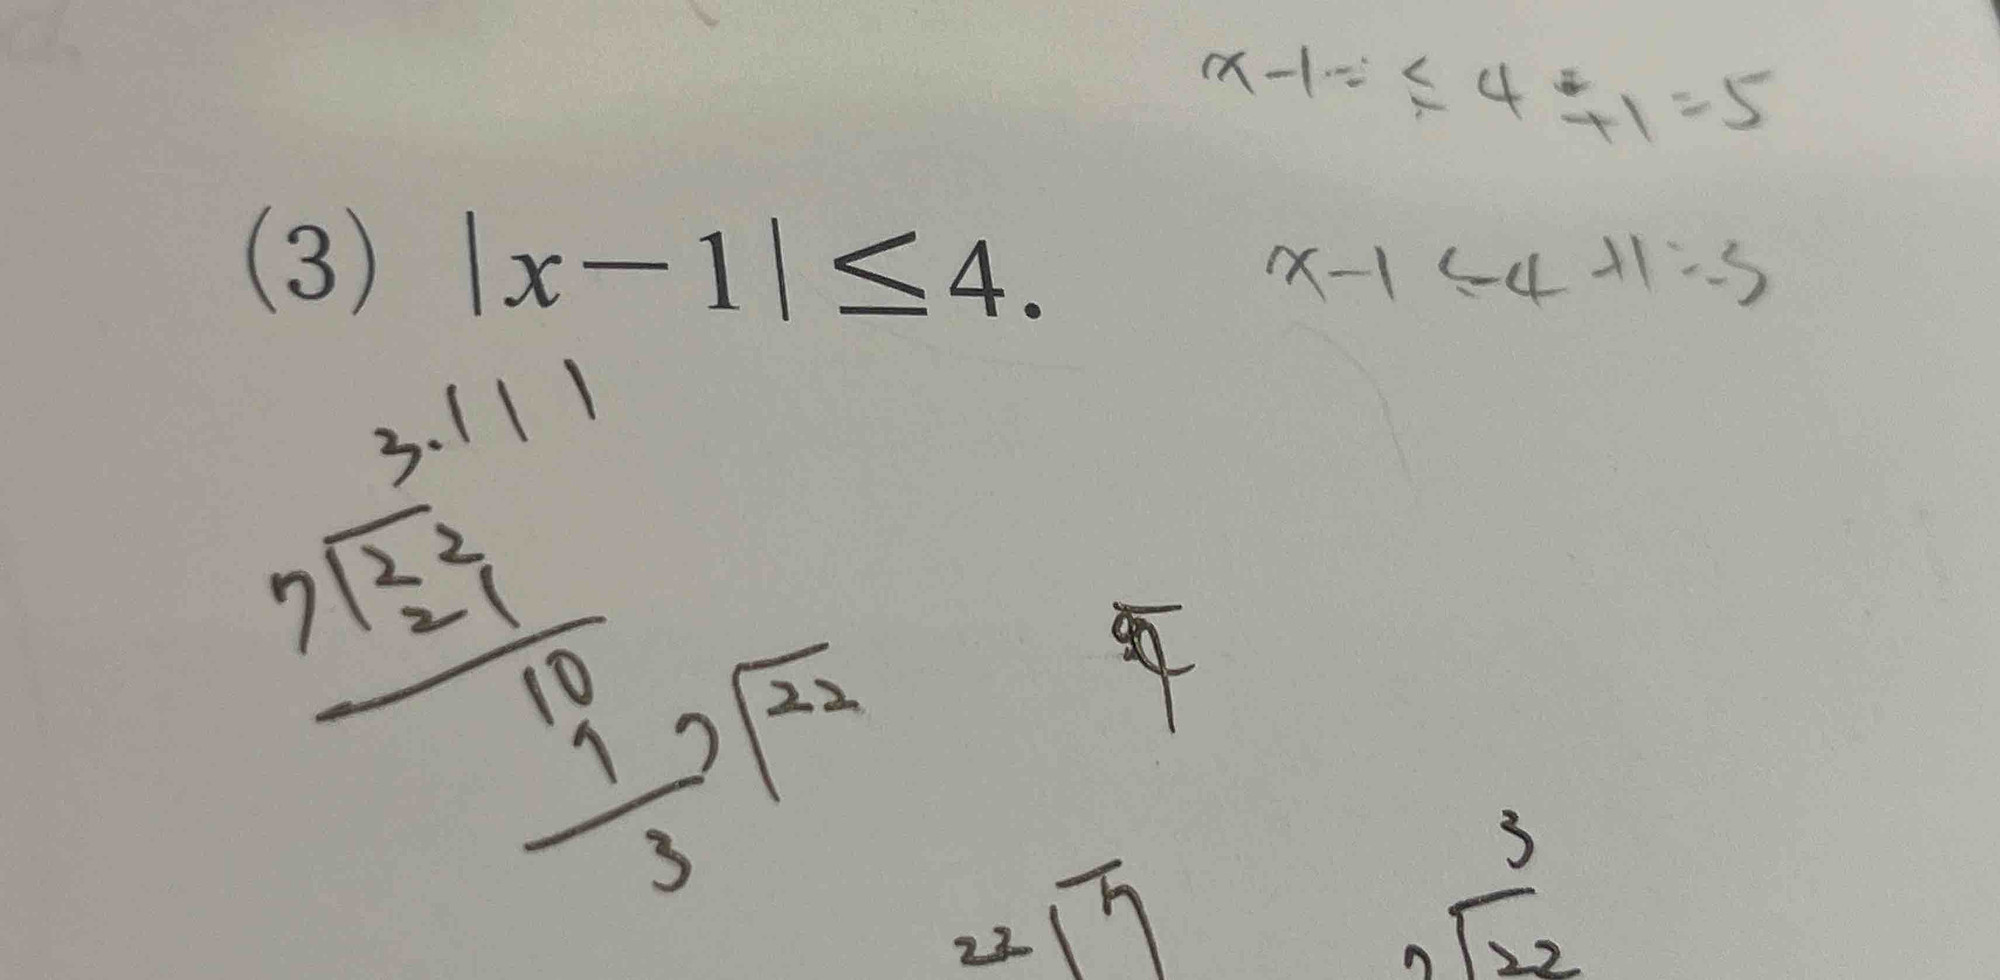 x-1= ≤ 4 +1 =5
(3) |x-1| ≤4.
x-1 ≤-4 +1=-3
3.111
7√22
21
10
7
7√22
3
3
22√7
7√22